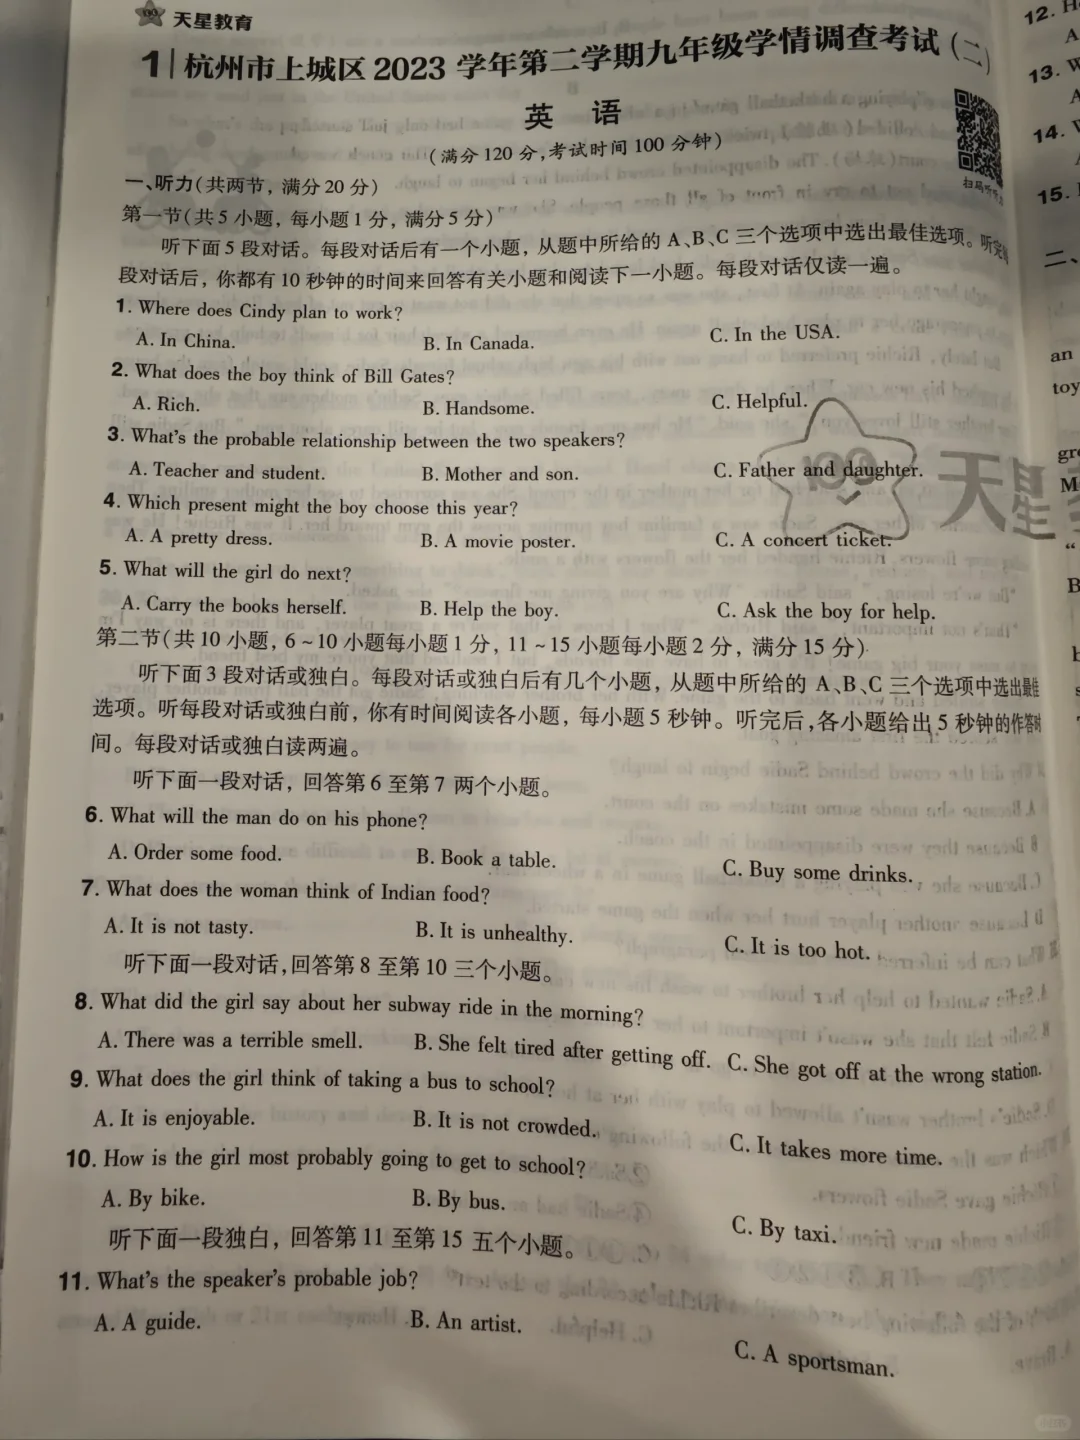 天星教育
1 杭州市上城区2023学年第二学期九年级学情调查考试(二)
英 语
(满分120分,考试时间100分钟)
扫码听听力
一、听力(共两节,满分20分)
第一节(共5小题,每小题1分,满分5分)
听下面5段对话。每段对话后有一个小题,从题中所给的A、B、C三个选项中选出最佳选项。听完每
段对话后,你都有10秒钟的时间来回答有关小题和阅读下一小题。每段对话仅读一遍。
1. Where does Cindy plan to work?
A. In China. B. In Canada. C. In the USA.
2. What does the boy think of Bill Gates?
A. Rich. B. Handsome. C. Helpful.
3. What's the probable relationship between the two speakers?
A. Teacher and student. B. Mother and son. C. Father and daughter.
4. Which present might the boy choose this year?
A. A pretty dress. B. A movie poster. C. A concert ticket.
5. What will the girl do next?
A. Carry the books herself. B. Help the boy. C. Ask the boy for help.
第二节(共10小题,6~10小题每小题1分,11~15小题每小题2分,满分15分)
听下面3段对话或独白。每段对话或独白后有几个小题,从题中所给的A、B、C三个选项中选出最佳
选项。听每段对话或独白前,你有时间阅读各小题,每小题5秒钟。听完后,各小题给出5秒钟的作答时
间。每段对话或独白读两遍。
听下面一段对话,回答第6至第7两个小题。
6. What will the man do on his phone?
A. Order some food. B. Book a table. C. Buy some drinks.
7. What does the woman think of Indian food?
A. It is not tasty. B. It is unhealthy. C. It is too hot.
听下面一段对话,回答第8至第10三个小题。
8. What did the girl say about her subway ride in the morning?
A. There was a terrible smell. B. She felt tired after getting off. C. She got off at the wrong station.
9. What does the girl think of taking a bus to school?
A. It is enjoyable. B. It is not crowded. C. It takes more time.
10. How is the girl most probably going to get to school?
A. By bike. B. By bus. C. By taxi.
听下面一段独白,回答第11至第15五个小题。
11. What's the speaker's probable job?
A. A guide. B. An artist. C. A sportsman.
天星
12.
13.
14.
15.
二、
an
toy